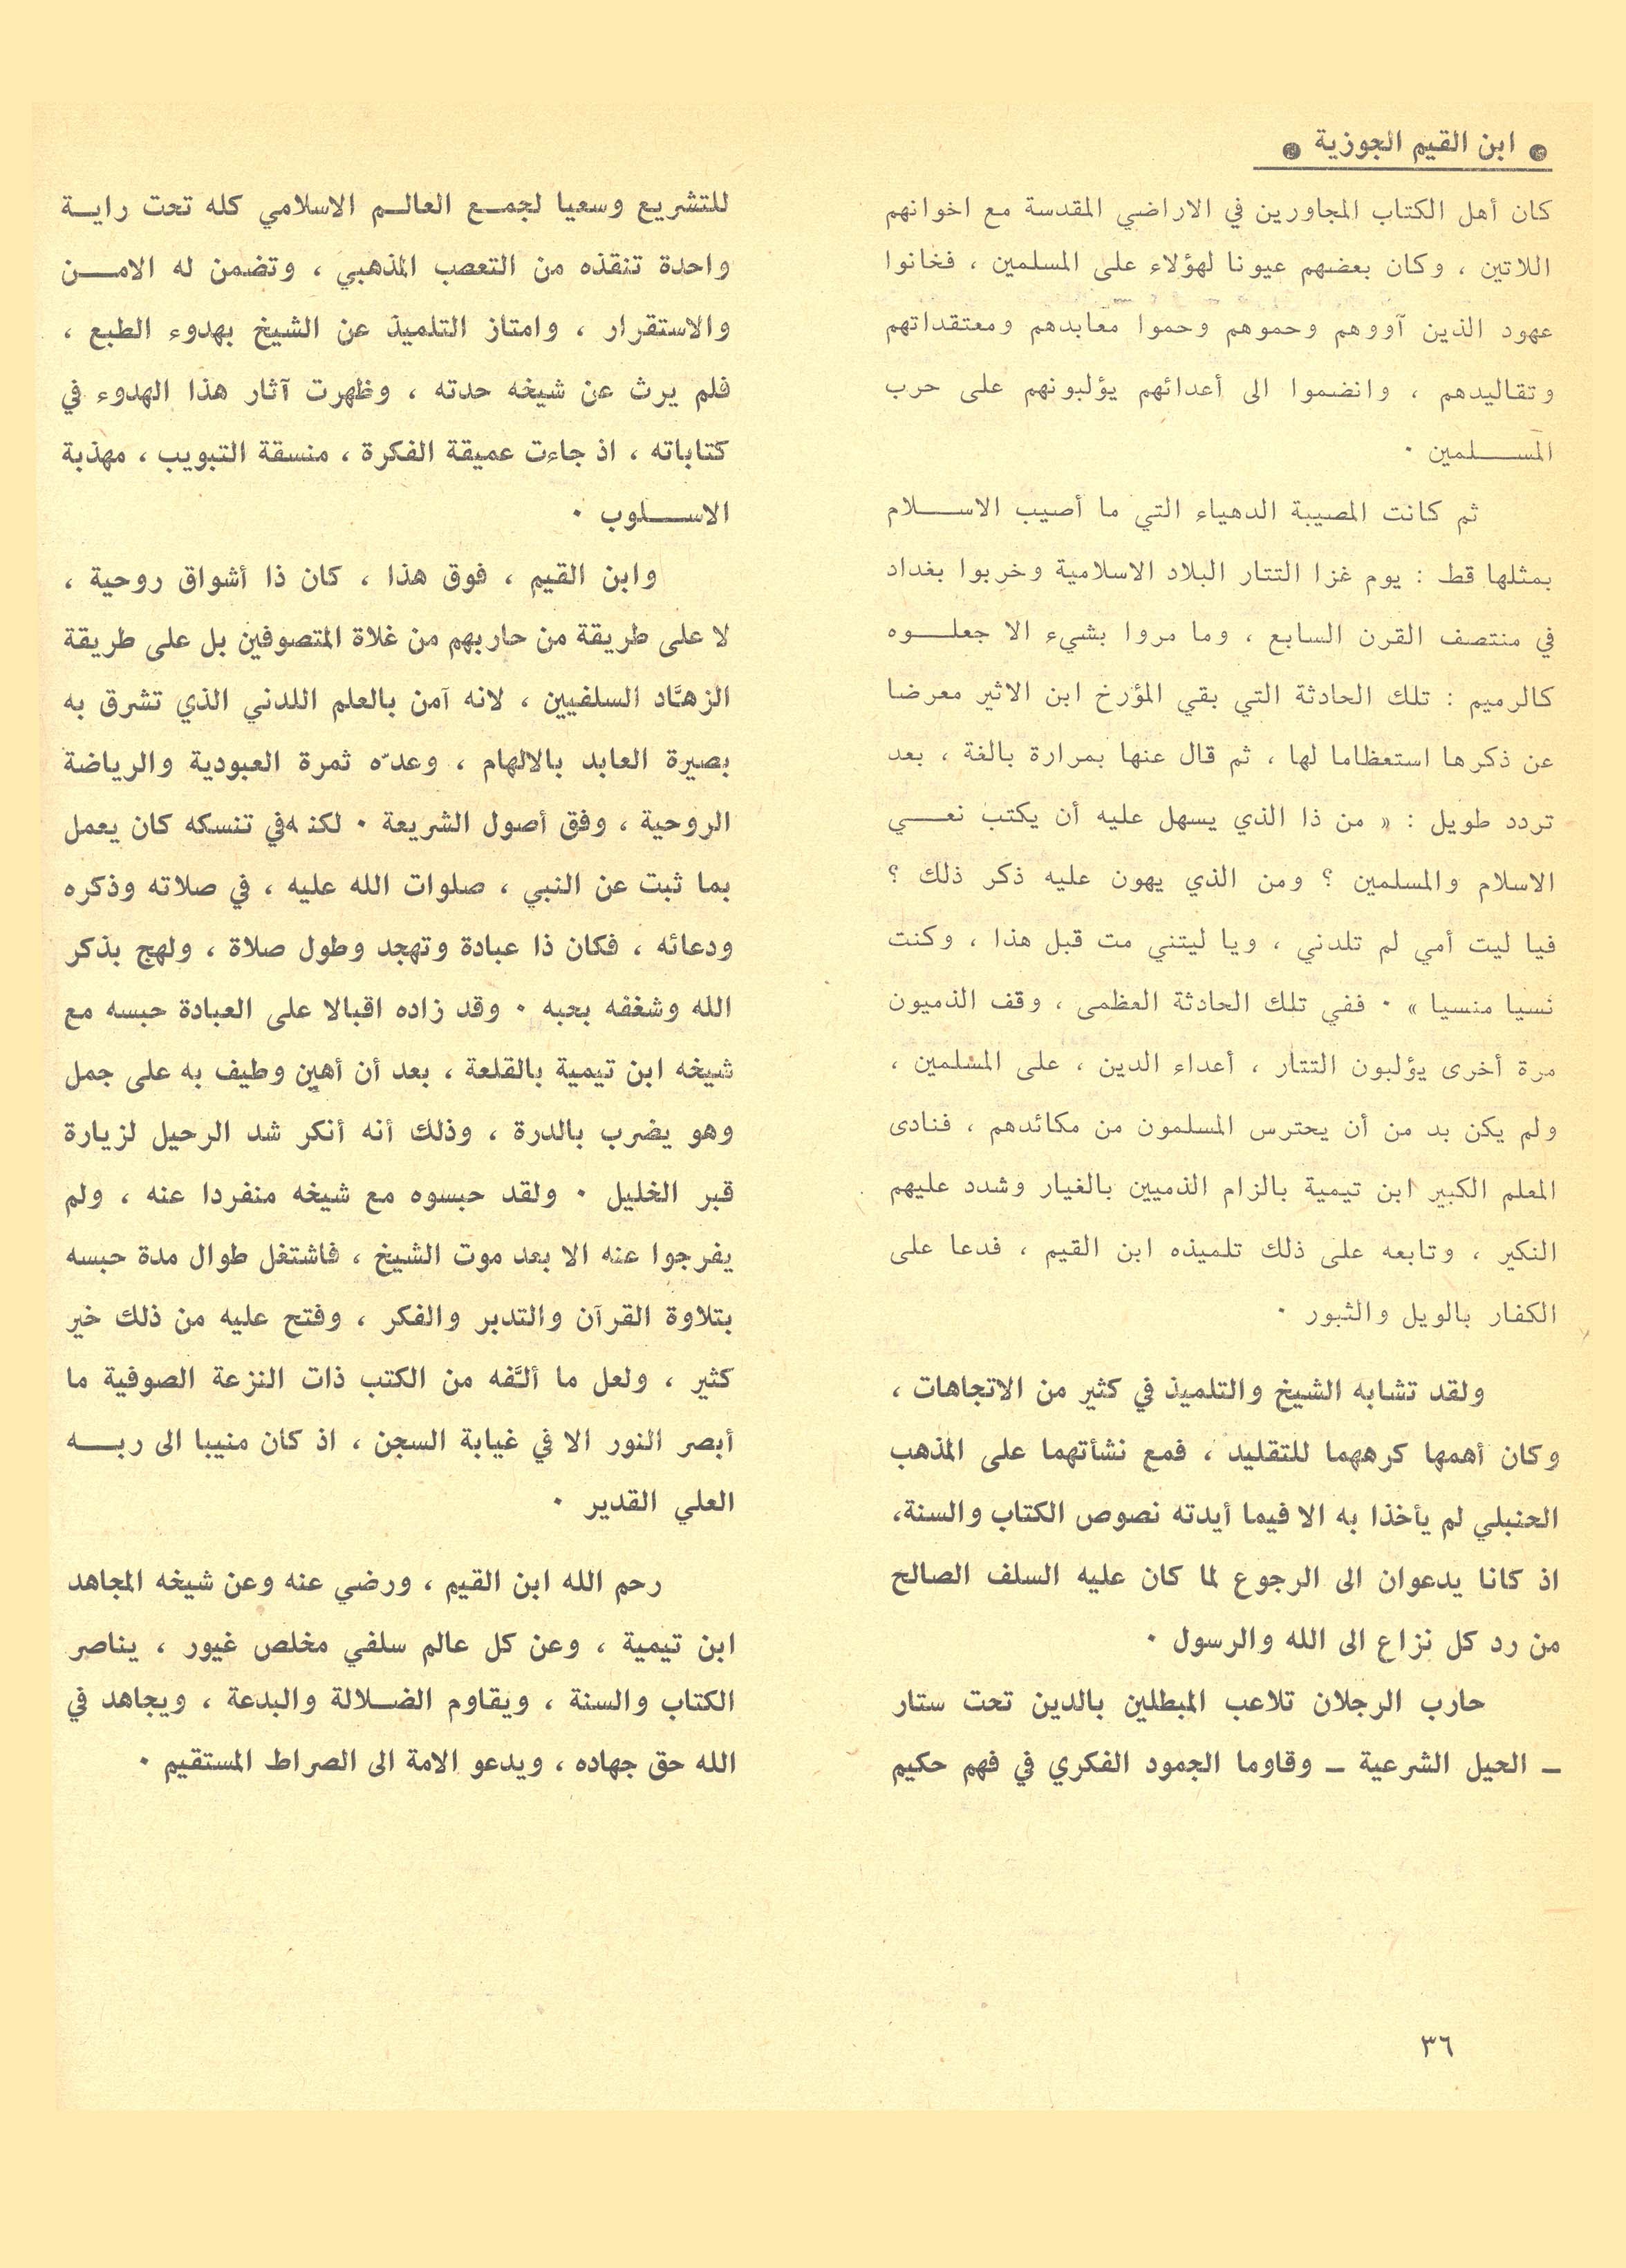 ● ابن القيم الجوزية ●
كان أهل الكتاب المجاورين في الاراضي المقدسة مع اخوانهم
اللاتين ، وكان بعضهم عيونا لهؤلاء على المسلمين ، فخانوا
عهود الذين آووهم وحموهم وحموا معابدهم ومعتقداتهم
وتقاليدهم ، وانضموا الى أعدائهم يؤلبونهم على حرب
المســـلمين ٠
ثم كانت المصيبة الدهياء التي ما أصيب الاســـلام
بمثلها قط : يوم غزا التتار البلاد الاسلامية وخربوا بغداد
في منتصف القرن السابع ، وما مروا بشيء الا جعلـــوه
كالرميم : تلك الحادثة التي بقي المؤرخ ابن الاثير معرضا
عن ذكرها استعظاما لها ، ثم قال عنها بمرارة بالغة ، بعد
تردد طويل : « من ذا الذي يسهل عليه أن يكتب نعـــي
الاسلام والمسلمين ؟ ومن الذي يهون عليه ذكر ذلك ؟
فيا ليت أمي لم تلدني ، ويا ليتني مت قبل هذا ، وكنت
نسيا منسيا » ٠ ففي تلك الحادثة العظمى ، وقف الذميون
مرة أخرى يؤلبون التتار ، أعداء الدين ، على المسلمين ،
ولم يكن بد من أن يحترس المسلمون من مكائدهم ، فنادى
المعلم الكبير ابن تيمية بالزام الذميين بالغيار وشدد عليهم
النكير ، وتابعه على ذلك تلميذه ابن القيم ، فدعا على
الكفار بالويل والثبور ٠
ولقد تشابه الشيخ والتلميذ في كثير من الاتجاهات ،
وكان أهمها كرههما للتقليد ، فمع نشأتهما على المذهب
الحنبلي لم يأخذا به الا فيما أيدته نصوص الكتاب والسنة،
اذ كانا يدعوان الى الرجوع لما كان عليه السلف الصالح
من رد كل نزاع الى الله والرسول ٠
حارب الرجلان تلاعب المبطلين بالدين تحت ستار
ــ الحيل الشرعية ــ وقاوما الجمود الفكري في فهم حكيم
للتشريع وسعيا لجمـع العالـم الاسلامي كله تحت رايـة
واحدة تنقذه من التعصب المذهبي ، وتضمن له الامـــن
والاستقرار ، وامتاز التلميذ عن الشيخ بهدوء الطبع ،
فلم يرث عن شيخه حدته ، وظهرت آثار هذا الهدوء في
كتاباته ، اذ جاءت عميقة الفكرة ، منسقة التبويب ، مهذبة
الاســـلوب ٠
وابن القيم ، فوق هذا ، كان ذا أشواق روحية ،
لا على طريقة من حاربهم من غلاة المتصوفين بل على طريقة
الزهَّاد السلفيين ، لانه آمن بالعلم اللدني الذي تشرق به
بصيرة العابد بالالهام ، وعدّه ثمرة العبودية والرياضة
الروحية ، وفق أصول الشريعة ٠ لكنه في تنسكه كان يعمل
بما ثبت عن النبي ، صلوات الله عليه ، في صلاته وذكره
ودعائه ، فكان ذا عبادة وتهجد وطول صلاة ، ولهج بذكر
الله وشغفه بحبه ٠ وقد زاده اقبالا على العبادة حبسه مع
شيخه ابن تيمية بالقلعة ، بعد أن أهين وطيف به على جمل
وهو يضرب بالدرة ، وذلك أنه أنكر شد الرحيل لزيارة
قبر الخليل ٠ ولقد حبسوه مع شيخه منفردا عنه ، ولم
يفرجوا عنه الا بعد موت الشيخ ، فاشتغل طوال مدة حبسه
بتلاوة القرآن والتدبر والفكر ، وفتح عليه من ذلك خير
كثير ، ولعل ما ألَّفه من الكتب ذات النزعة الصوفية ما
أبصر النور الا في غيابة السجن ، اذ كان منيبا الى ربـــه
العلي القدير ٠
رحم الله ابن القيم ، ورضي عنه وعن شيخه المجاهد
ابن تيمية ، وعن كل عالم سلفي مخلص غيور ، يناصر
الكتاب والسنة ، ويقاوم الضـلالة والبدعة ، ويجاهد في
الله حق جهاده ، ويدعو الامة الى الصراط المستقيم ٠
٣٦